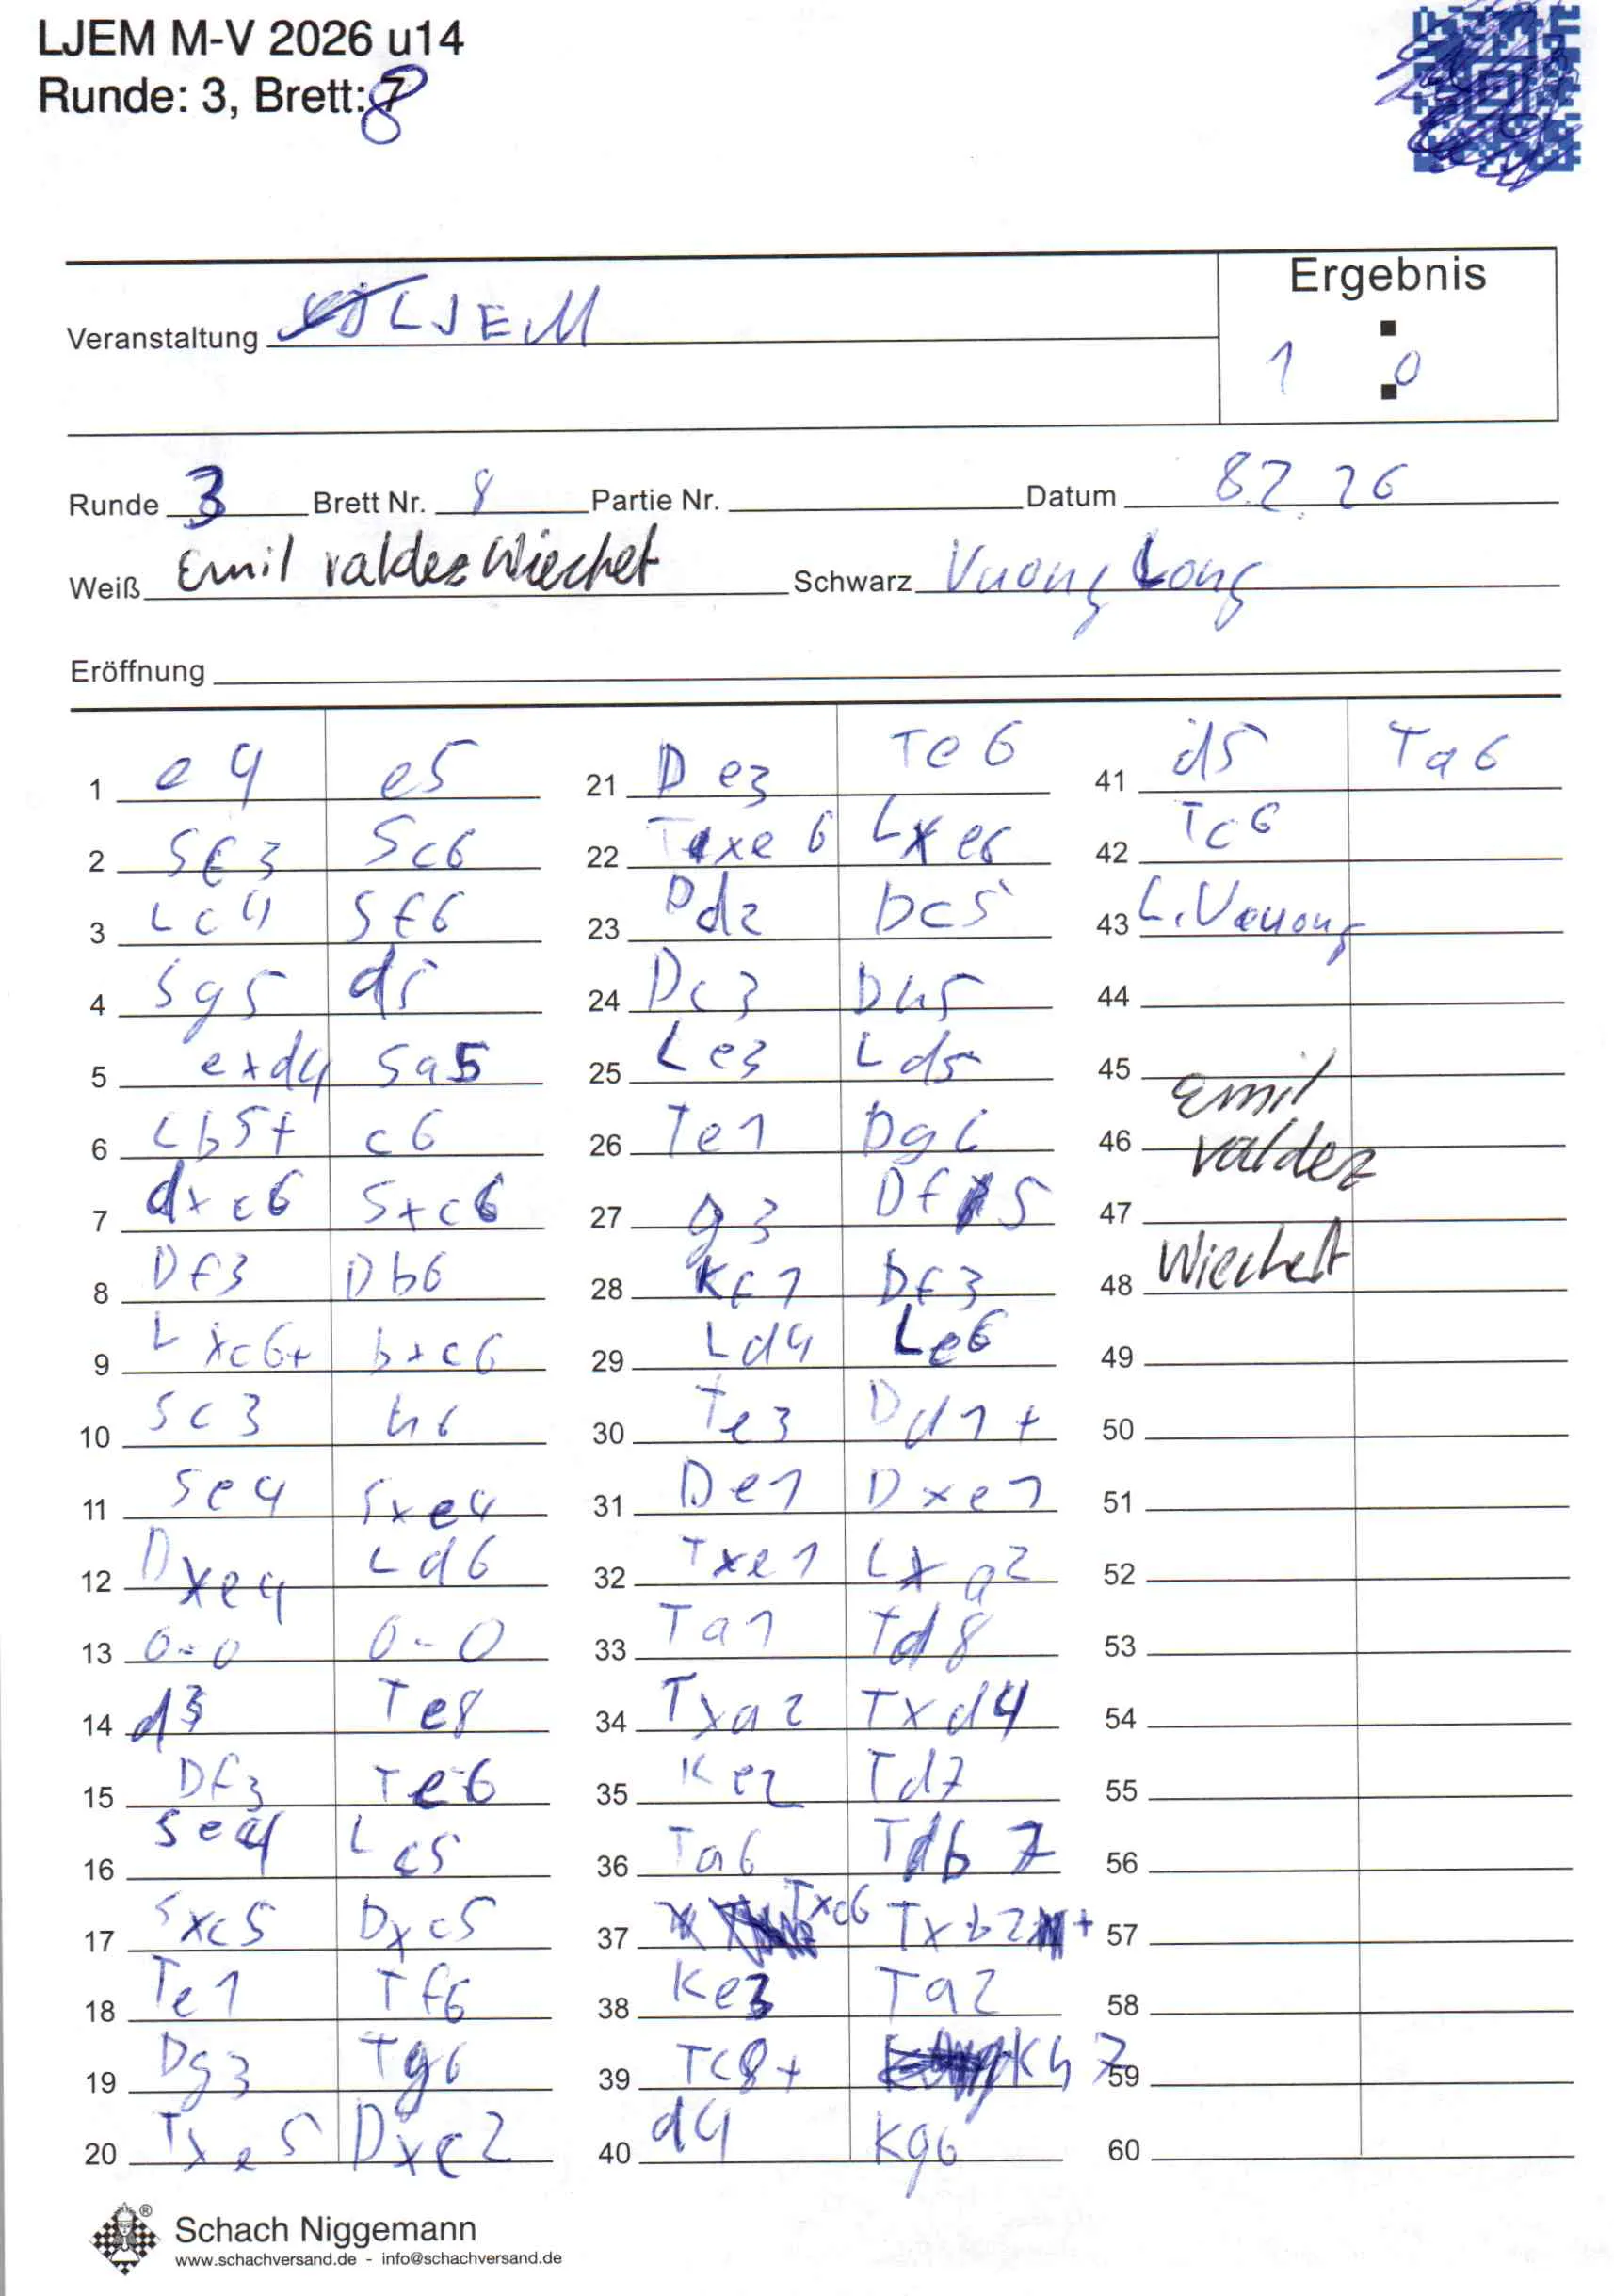 LJEM M-V 2026 u14
Runde: 3, Brett: 8
Ergebnis
Veranstaltung LJEM
1 : 0
Runde 3 Brett Nr. 8 Partie Nr. Datum 8.2.26
Weiß Emil Valdez Wiechelt Schwarz Vuong Long
Eröffnung
1 e4 e5 21 De3 Te6 41 d5 Ta6
2 Sf3 Sc6 22 Txe6 Lxe6 42 Tc6
3 Lc4 Sf6 23 Dd2 Dc5 43 L. Vuong
4 Sg5 d5 24 Dc3 Dh5 44
5 exd4 Sa5 25 Le3 Ld5 45 Emil
6 Lb5+ c6 26 Te1 Dg6 46 Valdez
7 dxc6 Sxc6 27 g3 Df5 47
8 Df3 Db6 28 Kf1 Df3 48 Wiechelt
9 Lxc6+ bxc6 29 Ld4 Le6 49
10 Sc3 h6 30 Te3 Dd1+ 50
11 Se4 Sxe4 31 De1 Dxe1 51
12 Dxe4 Ld6 32 Txe1 Lxa2 52
13 0-0 0-0 33 Ta1 Td8 53
14 d3 Te8 34 Txa2 Txd4 54
15 Df3 Te6 35 Ke2 Td7 55
16 Se4 Lc5 36 Ta6 Tb7 56
17 Sxc5 Dxc5 37 Txc6 Txb2+ 57
18 Te1 Tf6 38 Ke3 Ta2 58
19 Dg3 Tg6 39 Tc8+ Kh7 59
20 Txe5 Dxc2 40 d4 Kg6 60
®
Schach Niggemann
www.schachversand.de - info@schachversand.de